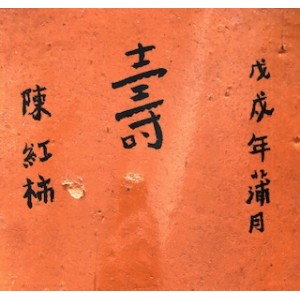 戊戌年蒲月
壽
陳紅柿